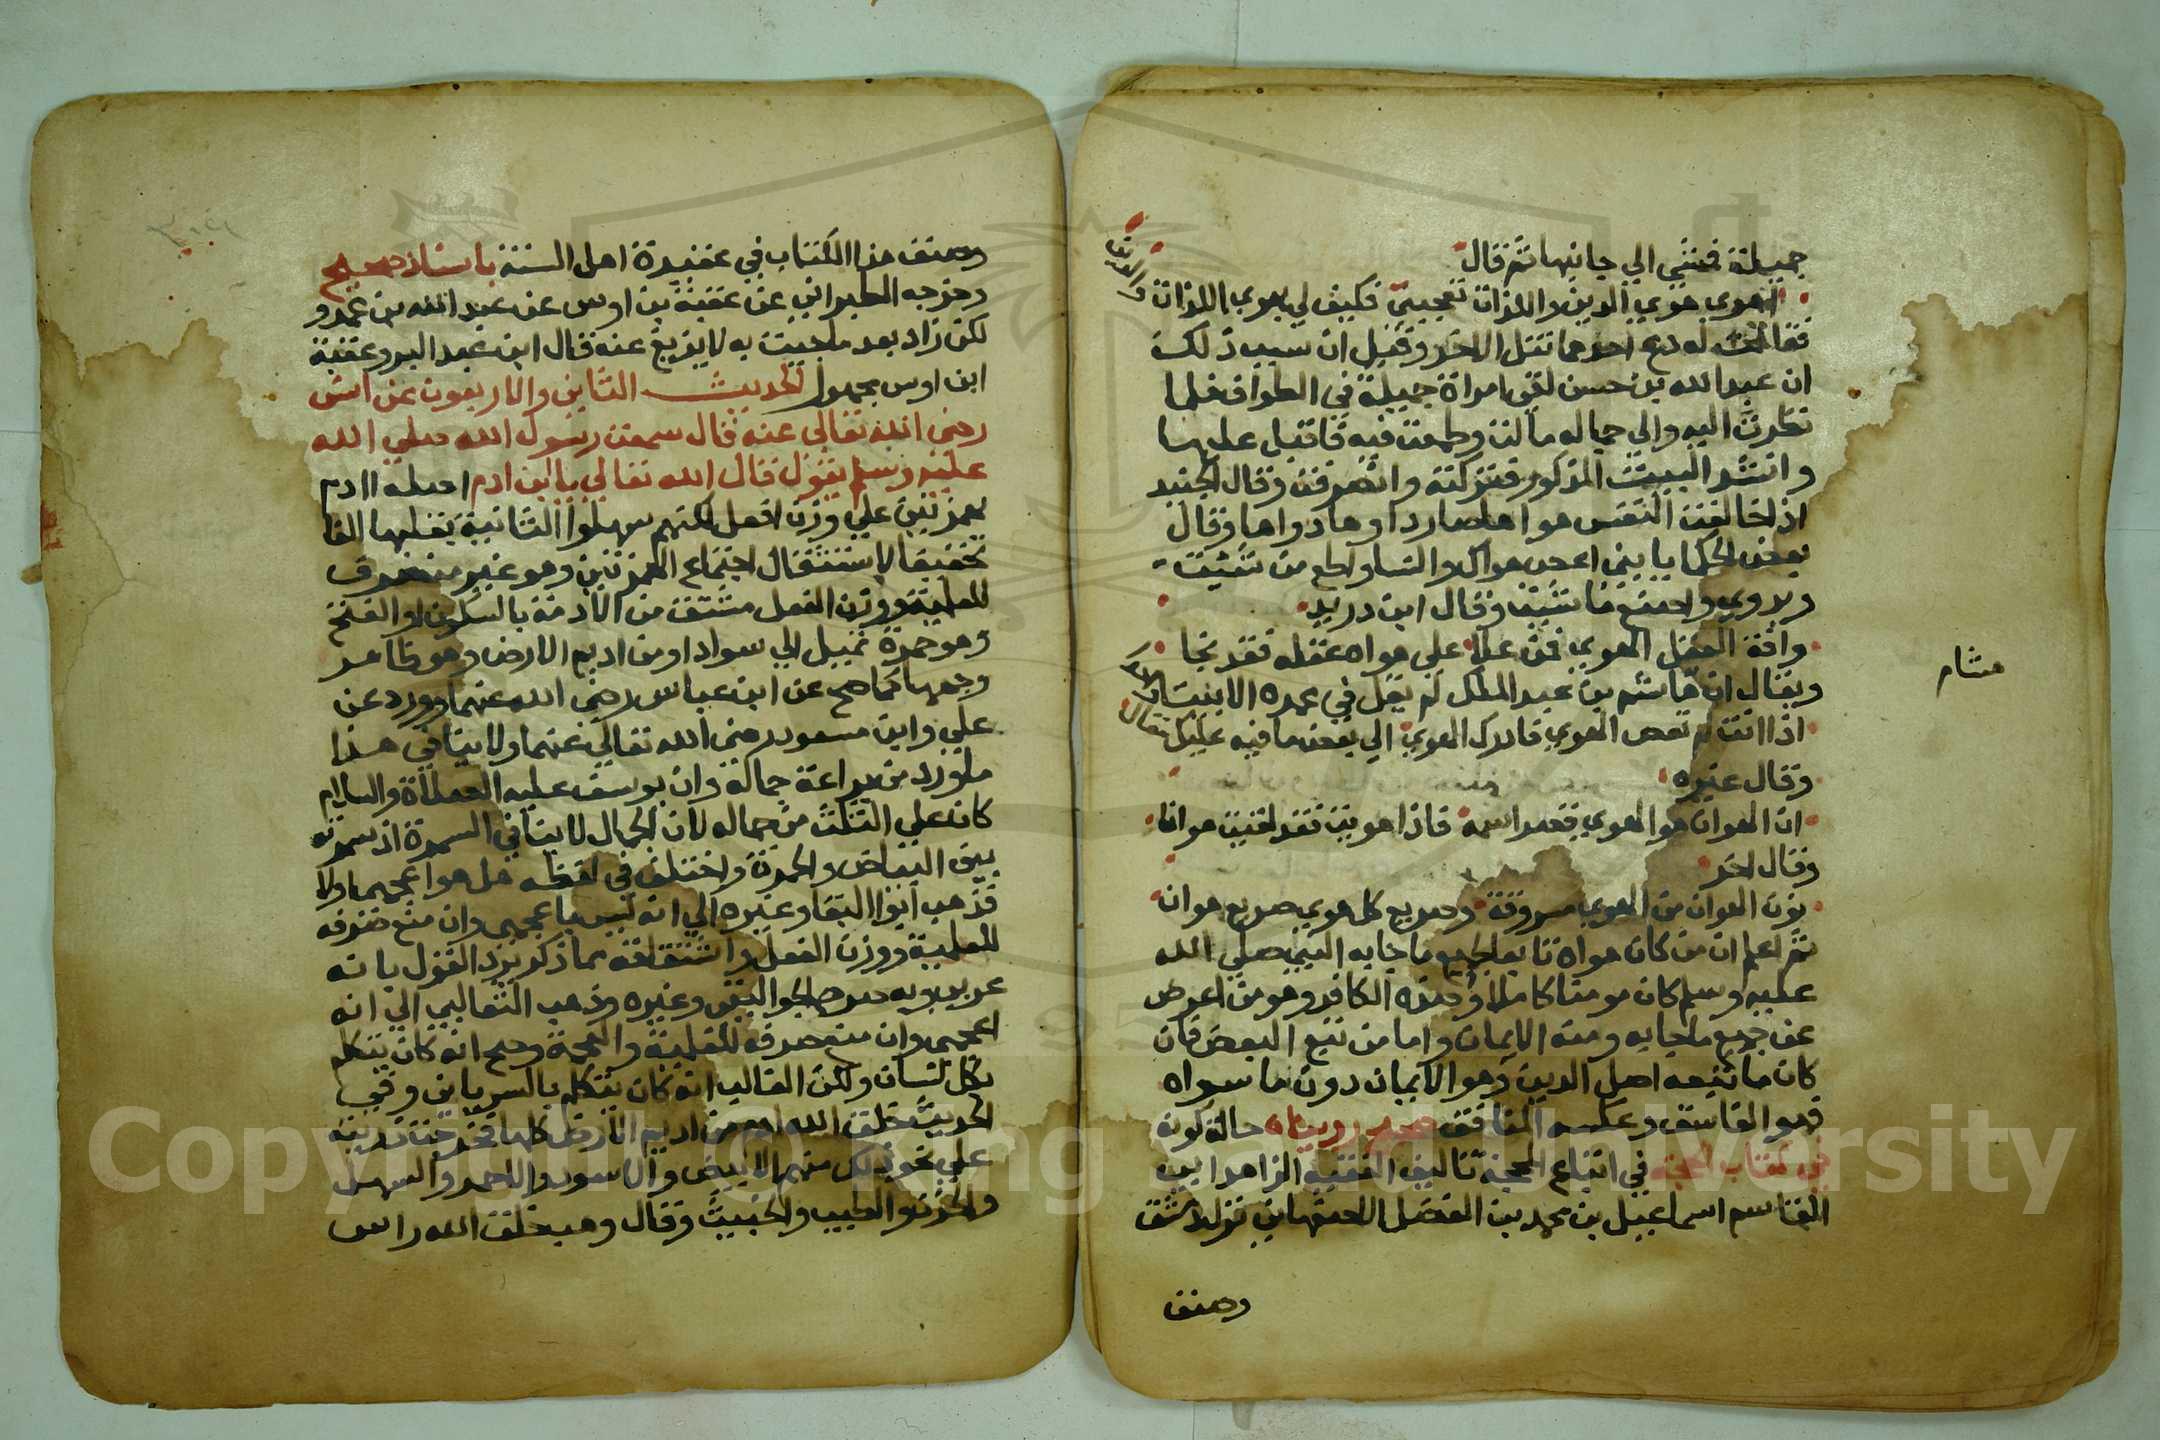 جميلة فمشي الي جانبها ثم قال
اهوي هوي الدين واللذات تعجبني فكيف لي بهوي اللذات
والدين
فقالت له دع احدهما تنل الاخر وقيل ان سبب ذلك
ان عبد الله بن حسن لقي امراة جميلة في الطواف فلما
نظرت اليه والي جماله مالت وطمعت فيه فاقبل عليها
وانشد البيت المذكور فتركته وانصرفت وقال الجنيد
اذا خالفت النفس هواها صار داوها دواها وقال
بعض الحكما يا بني اعص هواك والنسا واطع من شئت
ويروي واصنع ما شئت وقال ابن دريد
وافة العقل الهوي فمن علا علي هواه عقله فقد نجا
ويقال ان هاشم بن عبد الملك لم يقل في عمره الا بيتا
هشام
اذا انت لم تعص الهوي قادك الهوي الي بعض ما فيه عليك مقال
وقال غيره
ان الهوان هو الهوي فقصر اسمه فاذا هويت فقد لقيت هوانا
وقال اخر
نون الهوان من الهوي مسروقة وصريع كل هوي صريع هوان
ثم اعلم ان من كان هواه تابعا لجميع ما جا به النبي صلي الله
عليه وسلم كان مومنا كاملا وضده الكافر وهو من اعرض
عن جميع ما جا به ومنه الايمان واما من تبع البعض فان
كان ما تبعه اصل الدين وهو الايمان دون ما سواه
فهو الفاسق وعكسه المنافق حديث رويناه حالة كونه
في كتاب الحجة في اتباع المحجة تاليف الفقيه الزاهد ابي
القاسم اسماعيل بن محمد بن الفضل الاصبهاني نزيل دمشق
وصنف
وصنف هذا الكتاب في عقيدة اهل السنة باسناد صحيح
وخرجه الطبراني عن عقبة بن اوس عن عبد الله بن عمرو
لكن زاد بعد ما جيت به لا يزيغ عنه قال ابن عبد البر وعقبة
ابن اوس مجهول الحديث الثاني والاربعون عن انس
رضي الله تعالي عنه قال سمعت رسول الله صلي الله
عليه وسلم يقول قال الله تعالي يا ابن ادم اصله اادم
بهمزتين علي وزن افعل لكنهم سهلوا الثانية بقلبها الفا
تخفيفا لاستثقال اجتماع الهمزتين وهو غير منصرف
للعلمية ووزن الفعل مشتق من الادمة بالسكون او الفتح
وهو حمرة تميل الي سواد او من اديم الارض وهو ظاهر
وجهها كما صح عن ابن عباس رضي الله عنهما وورد عن
علي وابن مسعود رضي الله تعالي عنهما ولا ينافي هذا
ما ورد من براعة جماله وان يوسف عليه الصلاة والسلام
كان علي الثلث من جماله لان الجمال لا ينافي السمرة اذ سمرته
بين البياض والحمرة واختلف في لفظه هل هو اعجمي اولا
فذهب ابوا البقا وغيره الي انه ليس باعجمي وان منع صرفه
للعلمية ووزن الفعل واشتقاقه مما ذكر يرد القول بانه
عربي وبه صرح الجواليقي وغيره وذهب الثعالبي الي انه
اعجمي وان منع صرفه للعلمية والعجمة وصح انه كان يتكلم
بكل لسان ولكن الغالب انه كان يتكلم بالسرياني وفي
الحديث خلق الله ادم من اديم الارض كلها فخرجت ذريته
علي نحو ذلك منهم الابيض والاسود والاحمر والسهل
والحزن والطيب والخبيث وقال وهب خلق الله راس